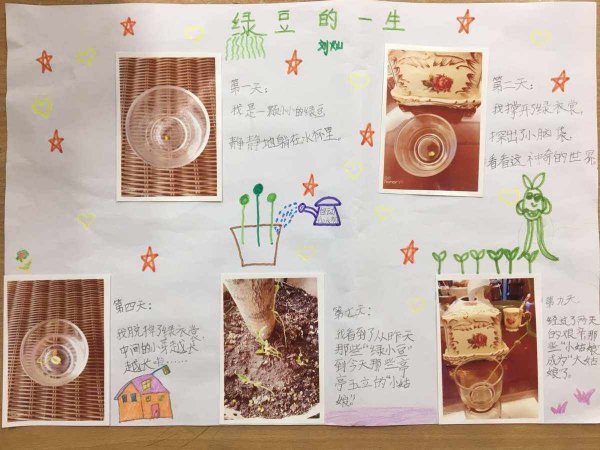 绿豆的一生
第一天：
我是一颗小小的绿豆
静静地躺在水杯里。
第二天：
我撑开绿衣裳，
探出了小脑袋，
看看这神奇的世界
第四天：
我脱掉了绿衣裳
中间的小芽越长
越长……
第七天：
我看到了从昨天
那些“绿小豆”
到今天那些亭
亭玉立的“小姑
娘”。
第九天：
经过了两天
的艰辛那
些“小姑娘”
成为“大姑
娘了。